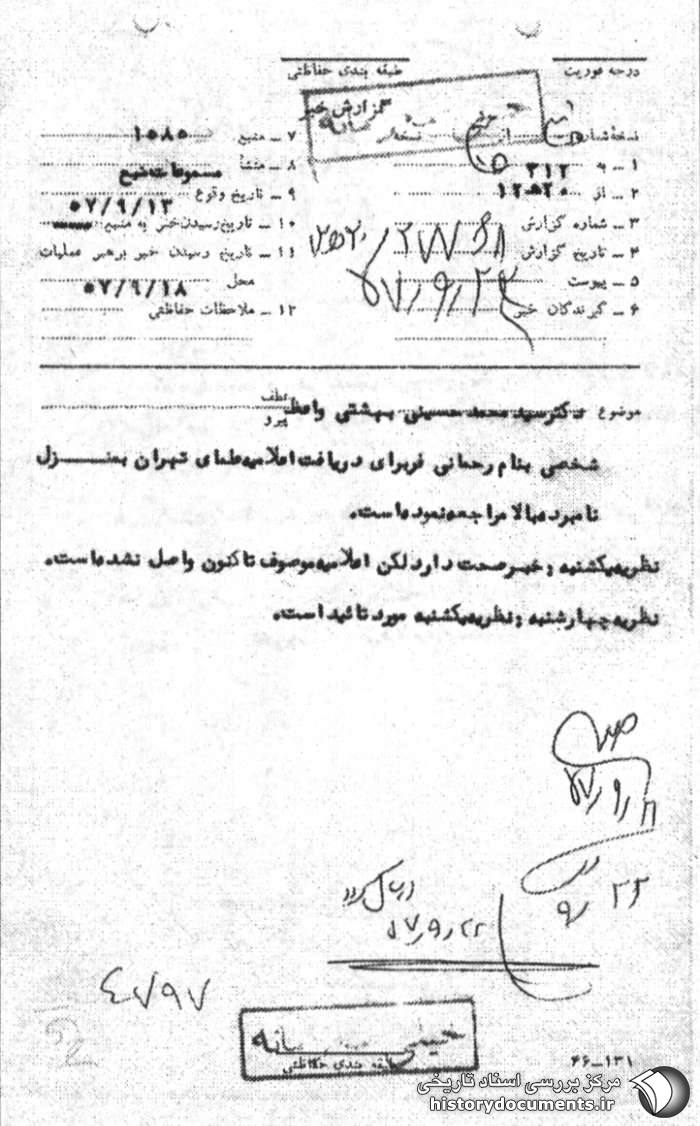 درجه فوریت
طبقه بندی حفاظتی
گزارش خبر
نسخه شماره
از
نسخه
۱ ــ به ۳۱۲
۲ ــ از ۲۰ﻫ۱۲
۳ ــ شماره گزارش
۴ ــ تاریخ گزارش ۵۷/۹/۲۲
۵ ــ پیوست
۶ ــ گیرندگان خبر
۷ ــ منبع ۱۵۸۵
۸ ــ منشأ مسموعات منبع
۹ ــ تاریخ وقوع ۵۷/۹/۱۳
۱۰ ــ تاریخ رسیدن خبر به منبع
۱۱ ــ تاریخ رسیدن خبر برهبر عملیات
محل ۵۷/۹/۱۸
۱۲ ــ ملاحظات حفاظتی
موضوع دکتر سید محمد حسینی بهشتی واعظ
عطف
پیرو
شخصی بنام رحمانی فر برای دریافت اعلامیه علمای تهران بمنـــزل
نامبرده بالا مراجعه نموده است.
نظریه یکشنبه : خبر صحت دارد لکن اعلامیه موصوف تاکنون واصل نشده است.
نظریه چهارشنبه : نظریه یکشنبه مورد تائید است.
۹/۲۲
۵۷/۹/۲۲
٤٧٩٧
خیلی محرمانه
طبقه بندی حفاظتی
۶۶ــ۱۳۱
مرکز بررسی اسناد تاریخی
historydocuments.ir